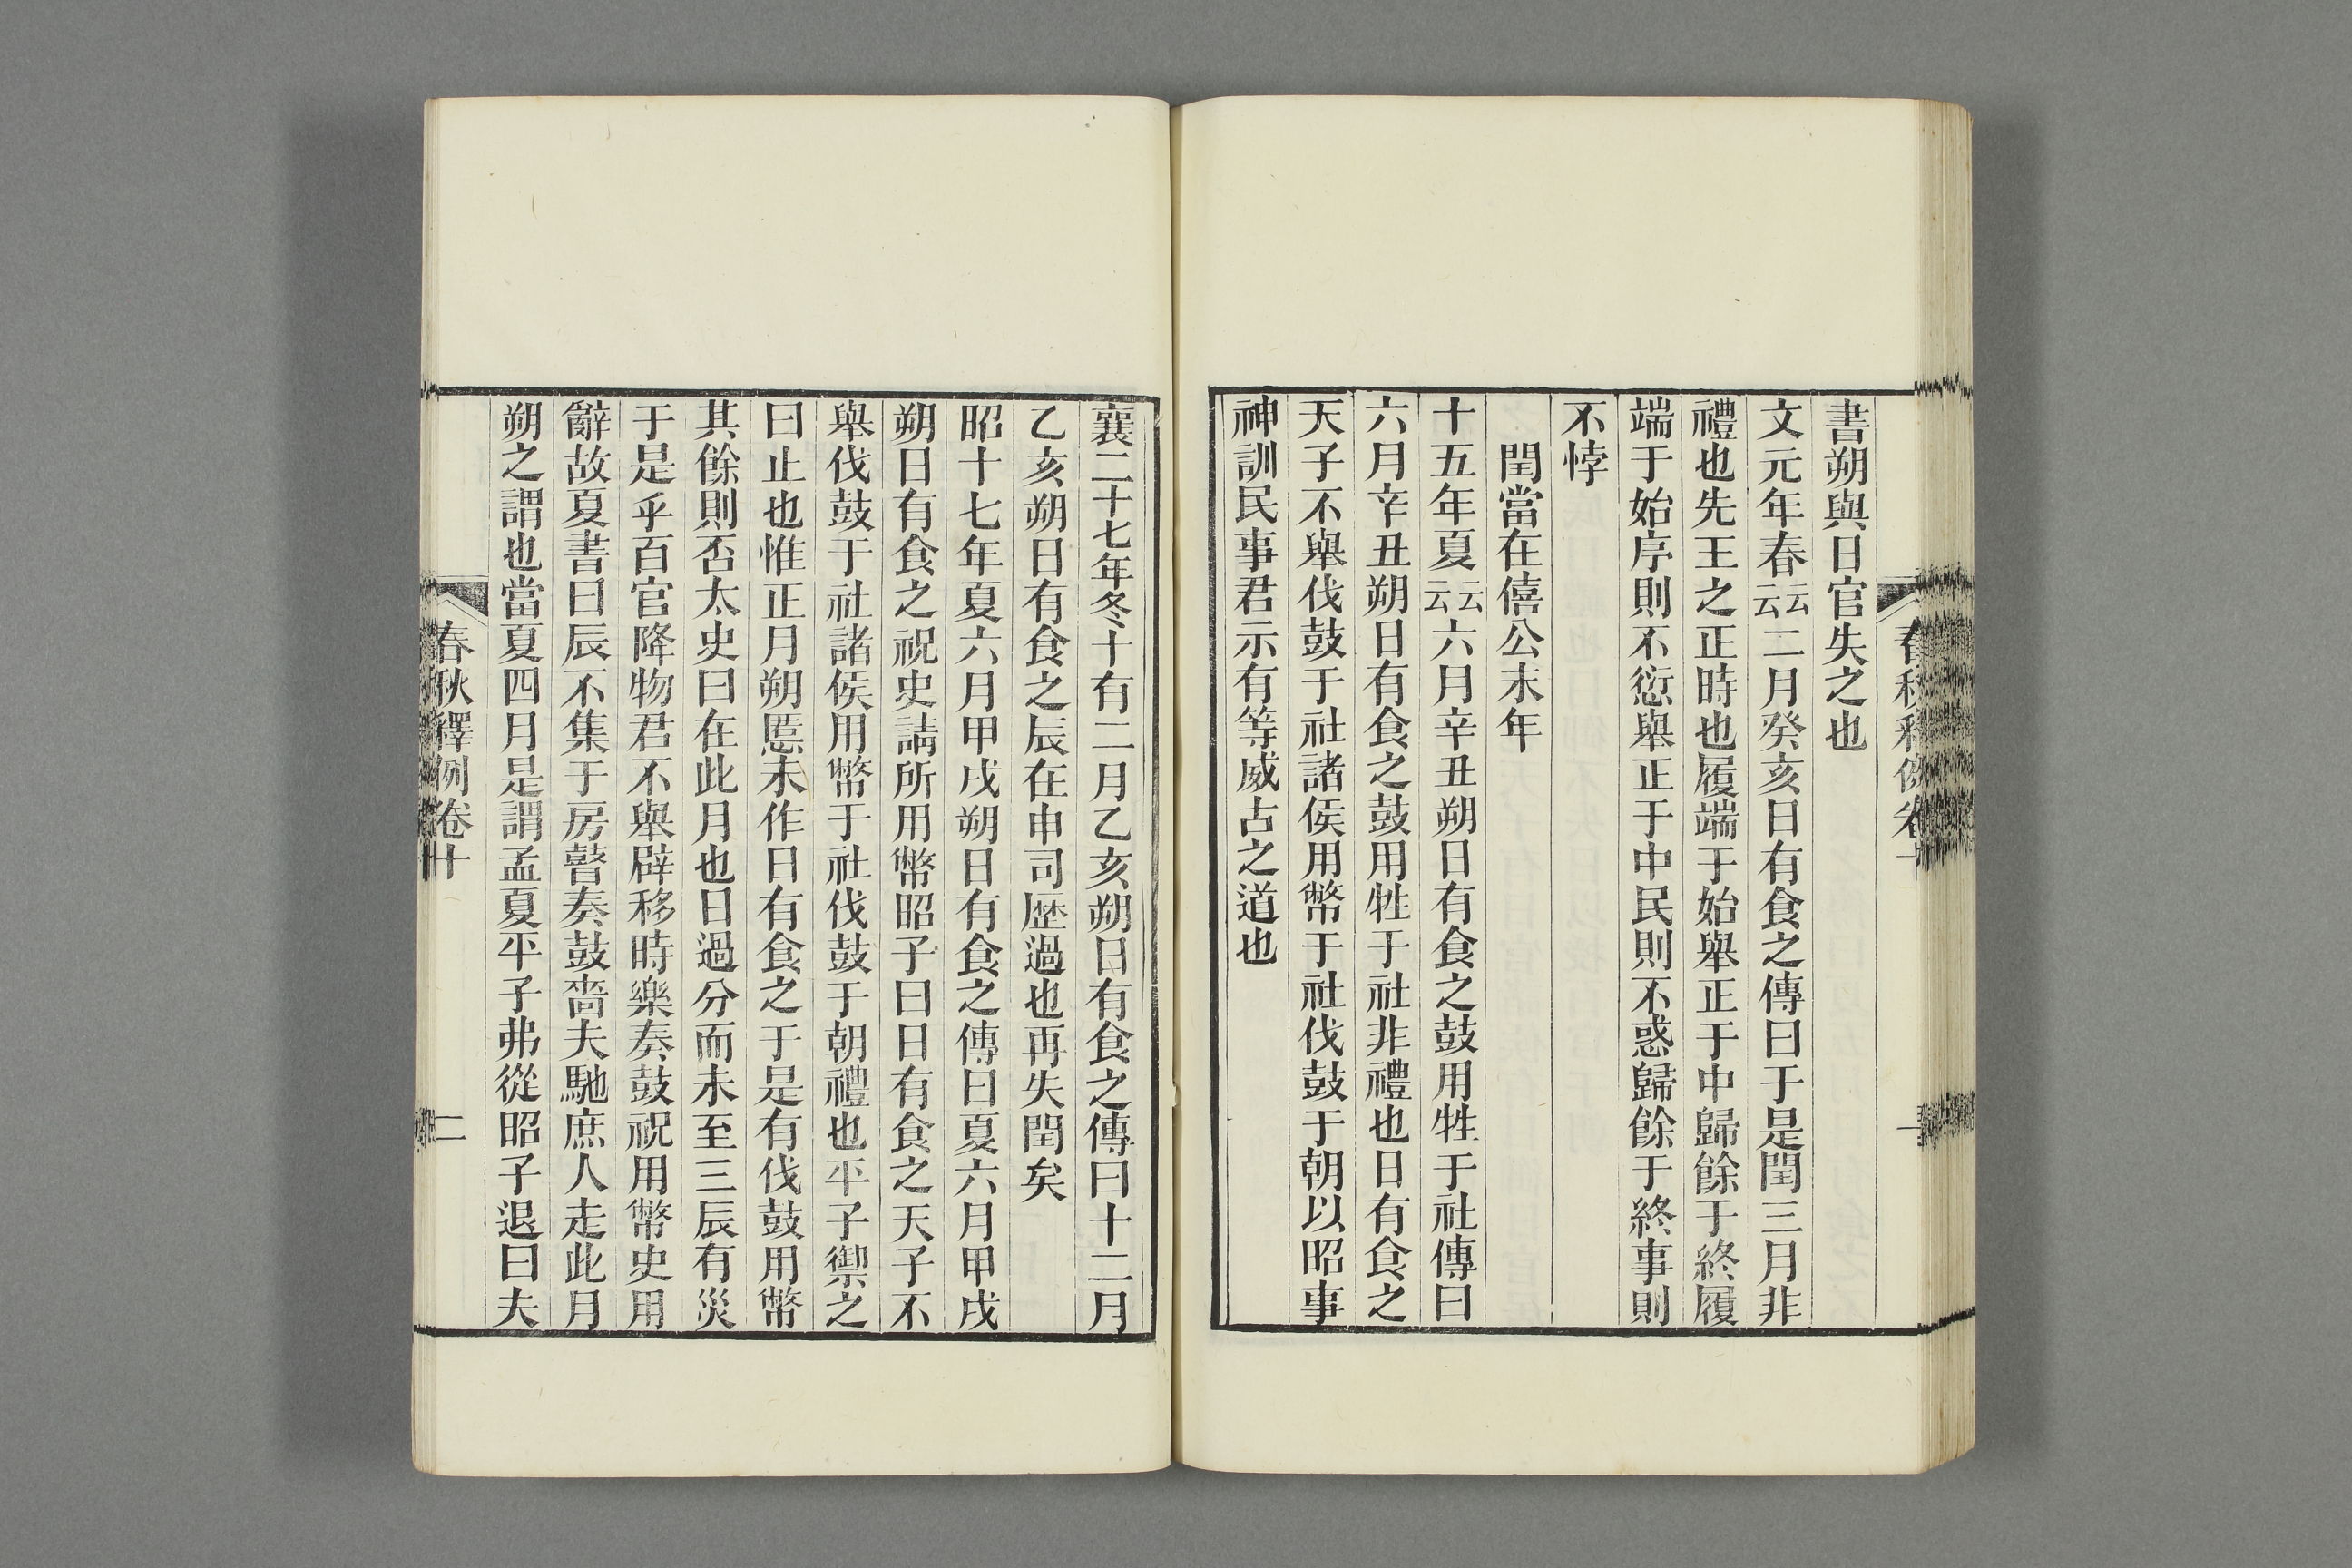 書朔與日官失之也
文元年春云云二月癸亥日有食之傳曰于是閏三月非
禮也先王之正時也履端于始舉正于中歸餘于終履
端于始序則不愆舉正于中民則不惑歸餘于終事則
不悖
閏當在僖公末年
十五年夏云云六月辛丑朔日有食之鼓用牲于社傳曰
六月辛丑朔日有食之鼓用牲于社非禮也日有食之
天子不舉伐鼓于社諸侯用幣于社伐鼓于朝以昭事
神訓民事君示有等威古之道也
襄二十七年冬十有二月乙亥朔日有食之傳曰十二月
乙亥朔日有食之辰在申司歷過也再失閏矣
昭十七年夏六月甲戌朔日有食之傳曰夏六月甲戌
朔日有食之祝史請所用幣昭子曰日有食之天子不
舉伐鼓于社諸侯用幣于社伐鼓于朝禮也平子禦之
曰止也惟正月朔慝未作日有食之于是有伐鼓用幣
其餘則否太史曰在此月也日過分而未至三辰有災
于是乎百官降物君不舉辟移時樂奏鼓祝用幣史用
辭故夏書曰辰不集于房瞽奏鼓嗇夫馳庶人走此月
朔之謂也當夏四月是謂孟夏平子弗從昭子退曰夫
春秋釋例卷十
二